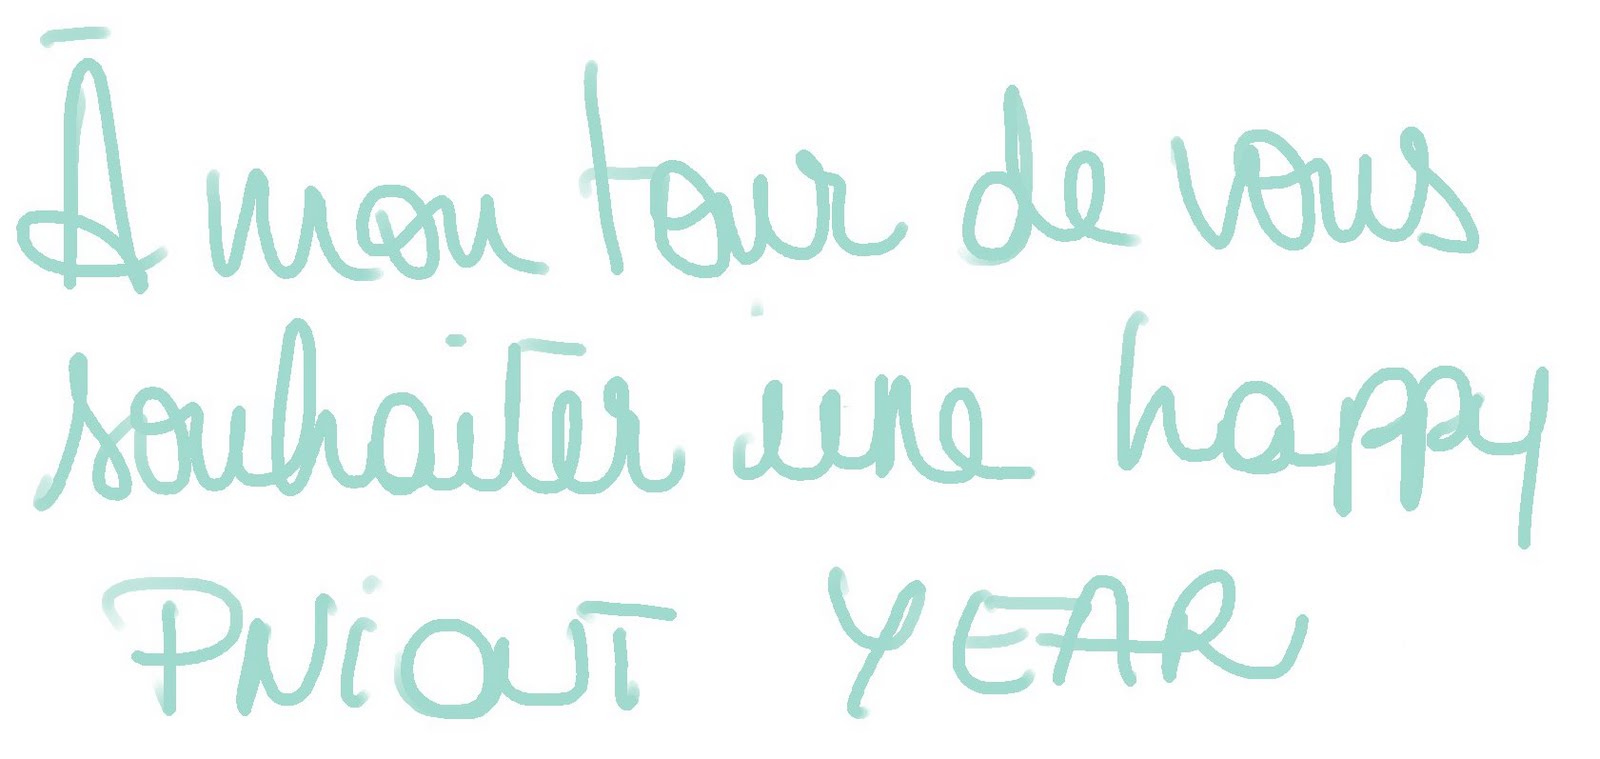 À mon tour de vous
souhaiter une happy
PNiOUT YEAR